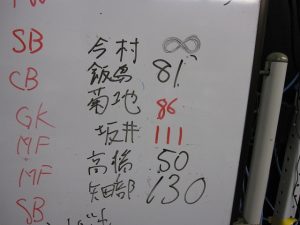 SB 今村 ∞
CB 飯島 81
GK 菊地 86
MF 坂井 111
MF 高橋 50
SB 矢田部 130